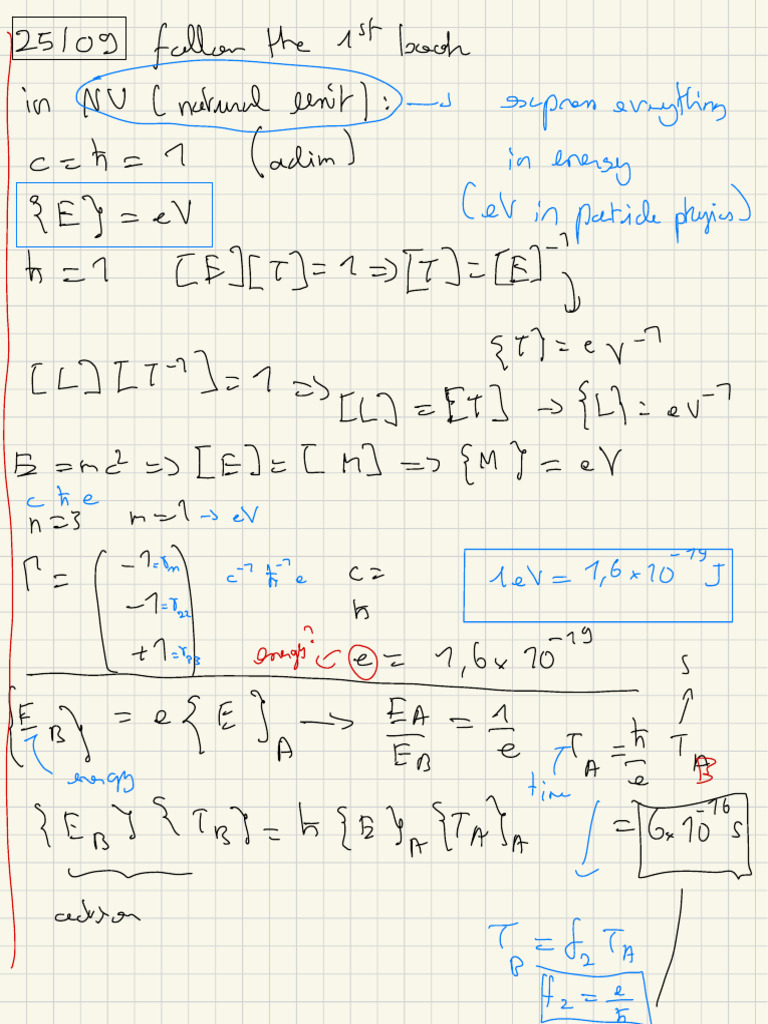 25/09 follow the 1st book
in NU (natural unit) : → express everything
c = ħ = 1 (adim) in energy
{E} = eV (eV in particle physics)
ħ = 1 [E][T] = 1 ⇒ [T] = [E]⁻¹
{T} = eV⁻¹
[L][T⁻¹] = 1 ⇒ [L] = [T] → {L} = eV⁻¹
E = mc² ⇒ [E] = [M] ⇒ {M} = eV
c ħ e
n = 3 m = 1 → eV
Γ = ( -1 = γ₁₁ c⁻¹ ħ⁻¹ e c = 1eV = 1,6 × 10⁻¹⁹ J
-1 = γ₂₂ ħ
+1 = γ₃₃ ) energy? ← e = 1,6 × 10⁻¹⁹ s
{E_B} = e {E}_A → E_A/E_B = 1/e T_A = ħ/e T_B
energy time
{E_B} {T_B} = ħ {E}_A {T_A}_A = 6 × 10⁻¹⁶ s
action
T_B = f₂ T_A
f₂ = e/ħ